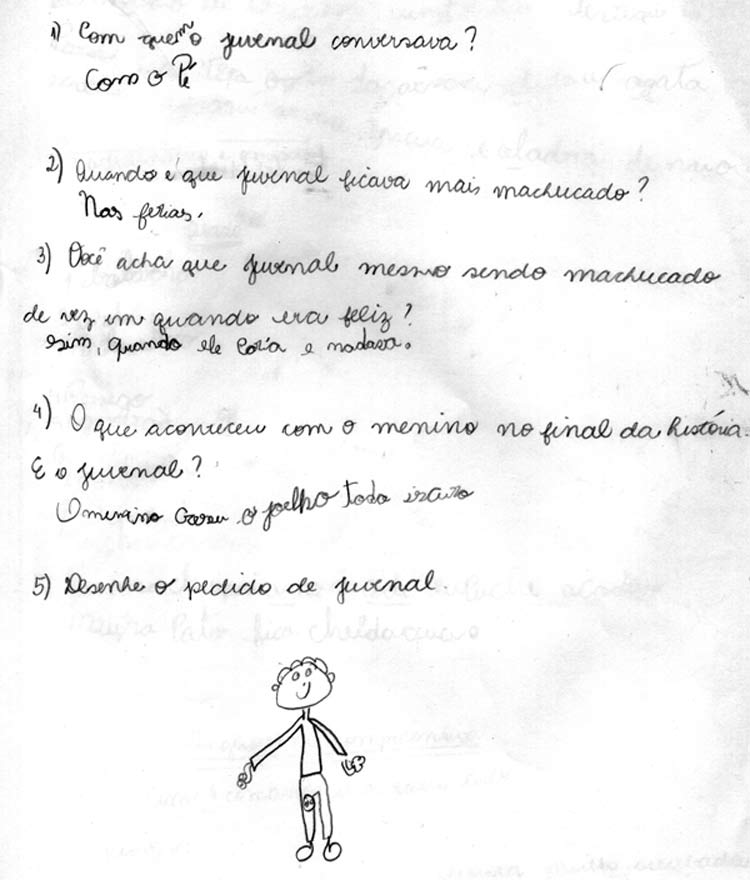 1) Com quem o juvenal conversava?
Com o Pé
2) Quando é que juvenal ficava mais machucado?
Nas ferias.
3) Você acha que juvenal mesmo sendo machucado
de vez em quando era feliz?
sim, quando ele coria e nadava.
4) O que aconteceu com o menino no final da história.
E o juvenal?
O menino o joelho todo
5) Desenhe o pedido de juvenal.